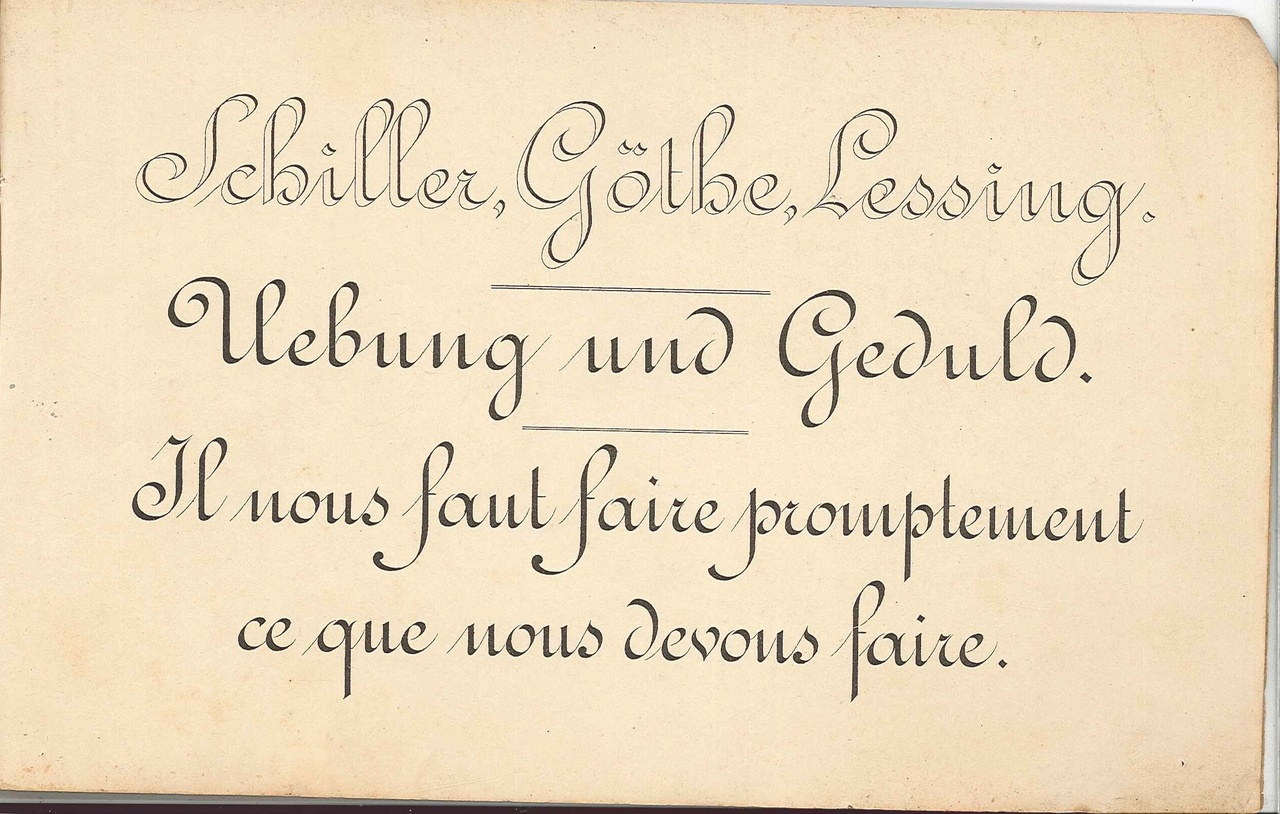 Schiller, Göthe, Lessing.
Uebung und Geduld.
Il nous faut faire promptement
ce que nous devons faire.